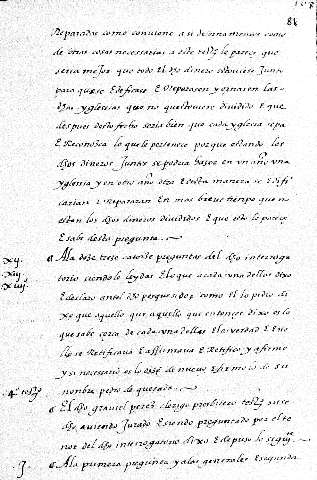 108
84
Reparadas como conviene asi de ornamentos como
de otras cosas necesarias a este tº le pareçe que
seria mejor que todo el dho dinero estoviese junto
para que se Edificasen E Reparasen y ornasen las
dhas yglesias que no que estoviese dividido E que
despues desto fecho seria bien que cada yglesia sepa
E Reconosca lo que le perteneçe porque estando los
dhos dineros juntos se podria hazer en un año una
yglesia y en otro año otra E desta manera se Edifi
carian E Repararian En mas breve tiempo que no
estan los dhos dineros divididos E questo le pareçe
E sabe desta pregunta
xij. A la doze treze catorze preguntas del dho interroga
xiij. torio siendole leydas E lo que a cada una dellas dixo
xiiij. E declaro antel dho pesquesidor como El lo pidio di
xo que aquello que aquello que entonçes dixo es lo
que sabe çerca de cada una dellas E la verdad E en e
llo se Retificava E afirmava E Retifico y afirmo
y si neçesario es lo dize de nuevo E firmolo de su
nombre pedro de quesada
4º tº El dho graviel perez clerigo presbitero tº suso
dho aviendo jurado E siendo preguntado por el te
nor del dho interrogatorio dixo E depuso lo seguiº
j. A la primera pregunta y a las generales E segunda